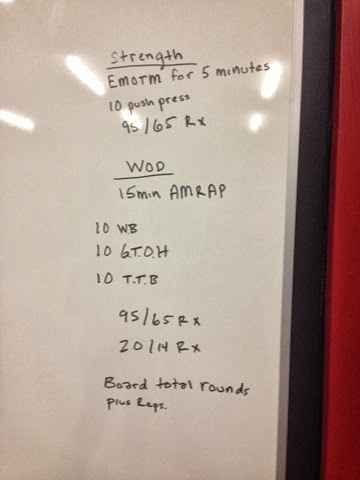 Strength
EMOTM for 5 minutes
10 push press
95/65 Rx
WOD
15min AMRAP
10 WB
10 G.T.O.H
10 T.T.B
95/65 Rx
20/14 Rx
Board total rounds
plus Reps.